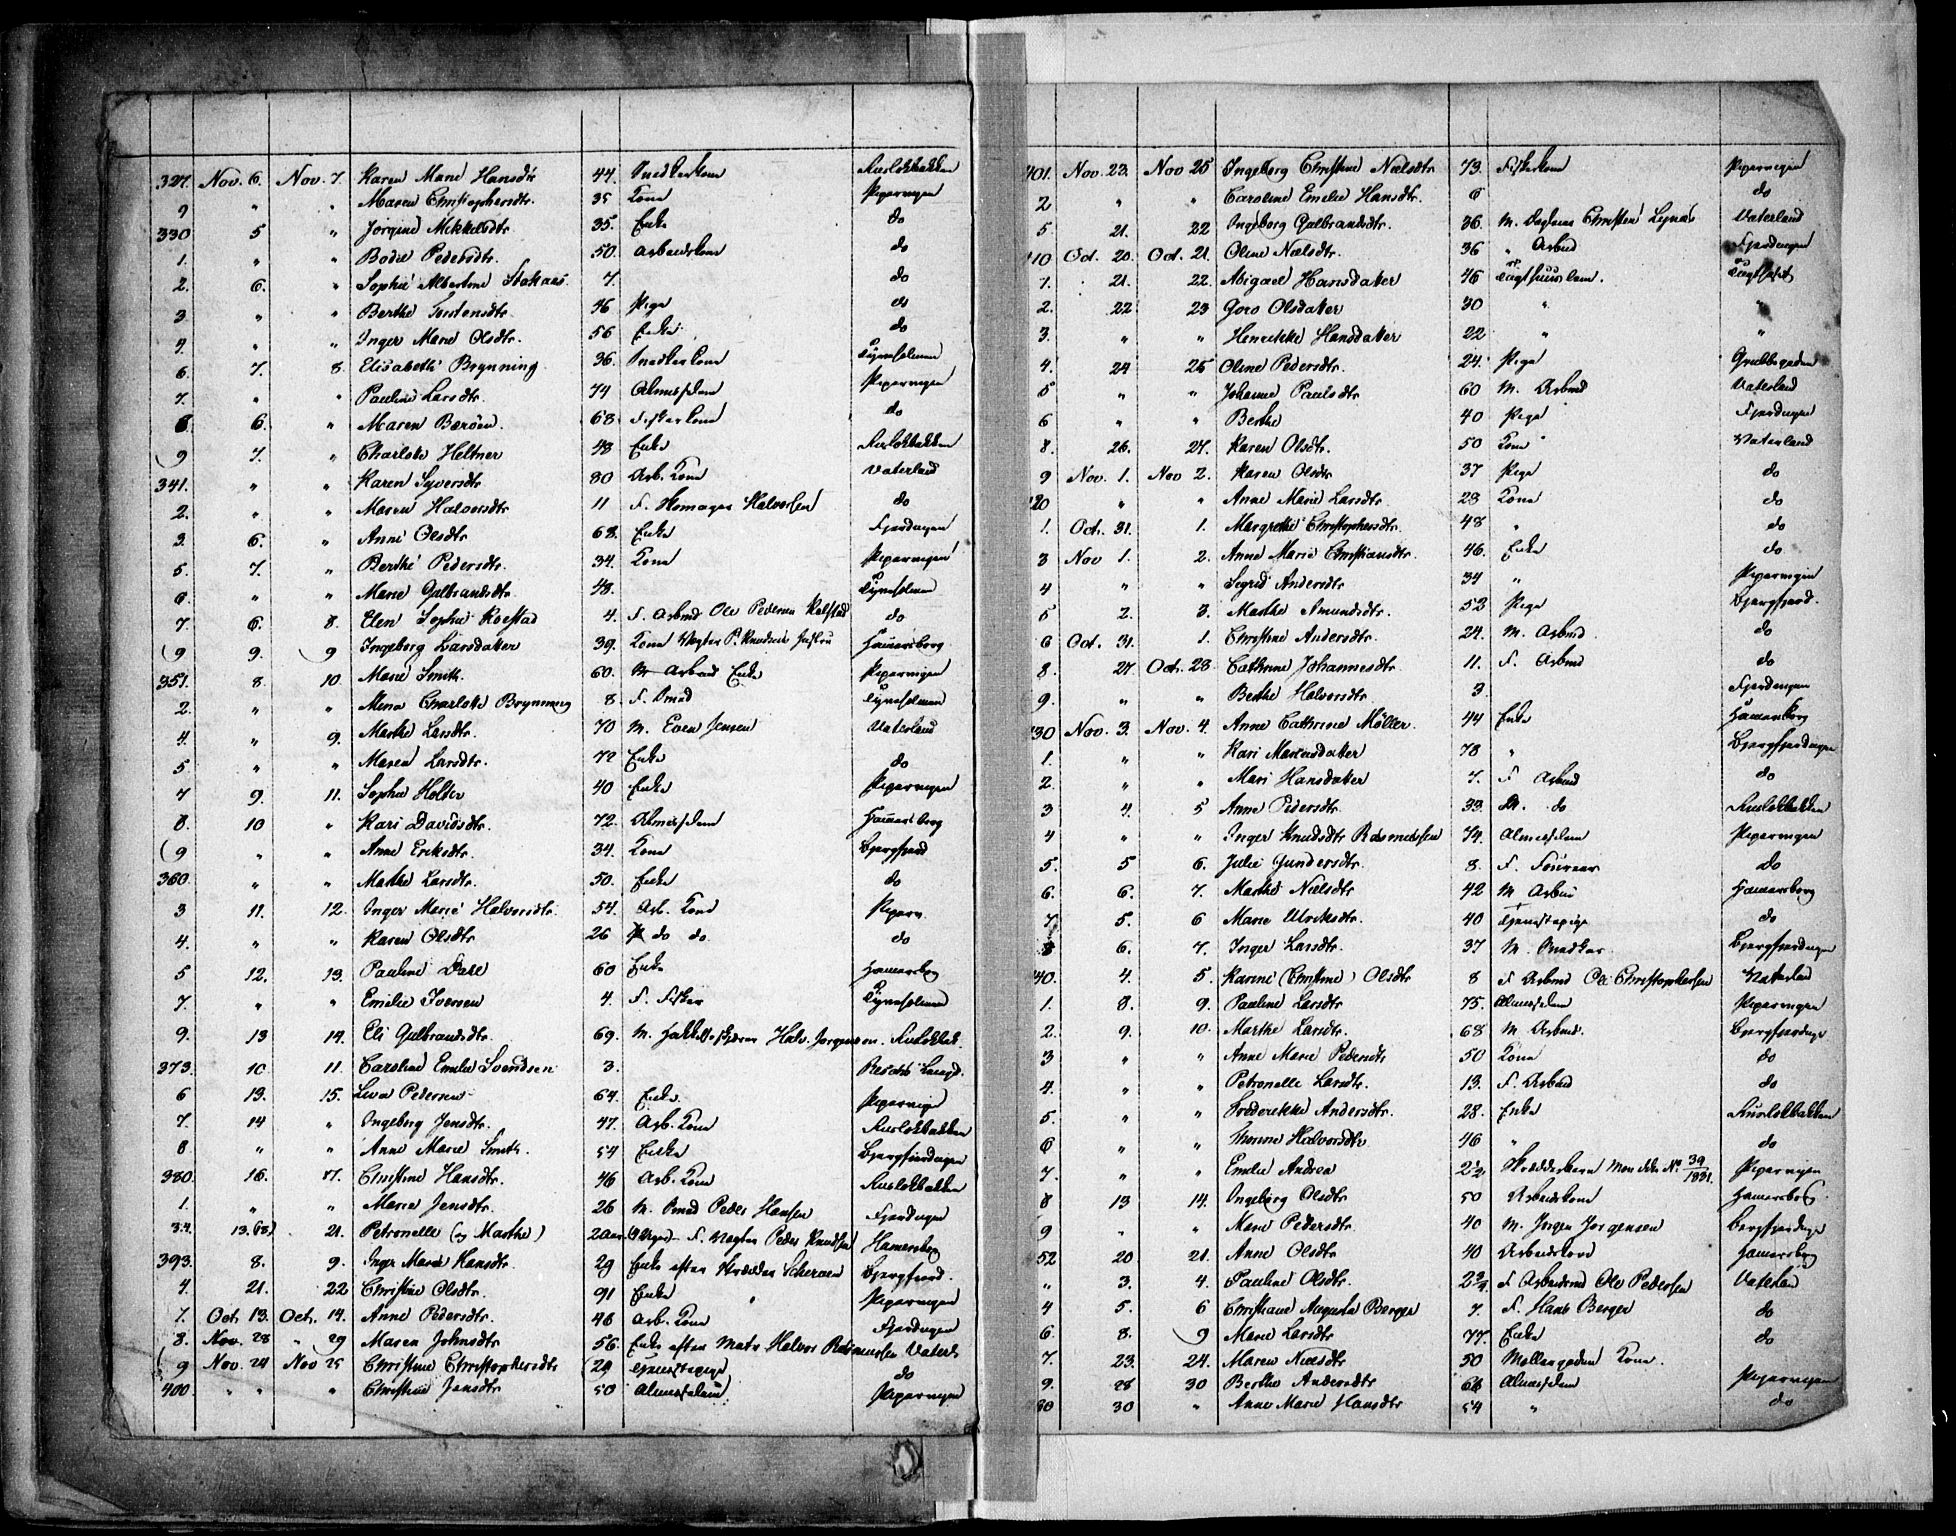 327. Nov. 6. Nov. 7. Karen Marie Hansdtr 44. Snedkerkone Ruseløkbakken
9 " " Maren Christophersdtr. 35 Kone Pipervigen
330 5 " Jørgine Mikkelsdtr 35. Enke do
1. " " Bodil Pedersdtr. 50. Arbeidskone do
2. 6. " Sophie Albertine 7. do
3 " " Berthe Torstensdtr 46 Pige do
4. " " Inger Marie Olsdtr. 56 Enke do
6. 7. 8. Elisabeth Brynning 36. Snedkerkone Tyveholmen
7. " " Pauline Larsdtr. 74 Almuelem Pipervigen
8 6. " Maren Bærøen. 68. Fiskerkone do
9 7. " Charlotte Heltner 48 Enke Ruseløkbakken
341. " " Karen Syversdtr 80 Arb. Kone Vaterland
2. " " Maren Halvorsdtr 11 F. Halvorsen do
3. 6. " Anne Olsdtr 68. Enke Fjerdingen
5. 7. " Berthe Pedersdtr. 34. Kone Pipervigen
6. " " Marie Gulbrandsdtr. 48. Tyveholmen
7 6. 8. Elen Sophie Roestad 4. F. Arbmd Ole Pedersen do
9 9. 9 Ingeborg Larsdatter 39. Kone Vægter P. Knudsen Hamersborg
351. 8. 10. Marie Smith. 60. M Arbmd Enke Pipervigen
2. " " Mina Charlotte Brynning 8. F. Smed Tyveholmen
4. " 9. Marthe Larsdtr. 70 M. Even Jensen Vaterland
5 " " Maren Larsdtr. 72 Enke do
7 9. 11. Sophie Holter 40 Enke Pipervigen
8. 10 " Kari Davidsdtr. 72. Almuelem Hamersborg
9 " " Anne Eriksdtr. 34. Kone Bjergfjerd
360. " " Marthe Larsdtr. 50. Enke do
3 11. 12. Inger Marie Halvorsdtr. 54. Arb. Kone Piperv.
4. " " Karen Olsdtr 26 do do do
5 12. 13. Pauline Dahl 60 Enke Hamersborg
7. " " Emilie Iversen 4. F. Fisker Tyveholmen
9. 13 14. Eli Gulbrandsdtr. 69. M. Halv. Jørgensen. Ruseløkbak.
373. 10 11. Caroline Emilie Svendsen 3.
6 13. 15. Lena Pedersen 64. Enke. Pipervigen
7. 14 " Ingeborg Jensdtr. 47. Arb. Kone Ruseløkbakken
8 " " Anne Marie Smith. 54 Enke Bjergfjerdingen
380. 16. 17. Christine Hansdtr. 46 Arb. Kone Ruseløkbakken
1. " " Marie Jensdtr. 26 M. Smed Peder Hansen Fjerdingen
3.4. 13. 21. Petronelle (og Marthe) F. Vægter Peder Knudsen Hamersborg
393. 8. 9. Inger Marie Hansdtr. 29 Enke efter Skrædder Bjergfjerd.
4. 21. 22 Christine Olsdtr. 91 Enke Pipervigen
7. Oct 13. Oct. 14. Anne Pedersdtr. 46 Arb. Kone Fjerdingen
8. Nov. 28 " 29 Maren Johnsdtr 56. Enke efter Matr Halvor Rasmussen Vaterl.
9 Nov. 24 Nov 25 Christine Christophersdtr 29 Tjenestepige do
400. " " " Christine Jensdtr. 50 Almuelem Pipervigen
401. Nov. 23. Nov 25 Ingeborg Christine Nielsdtr 73. Fiskerkone Pipervigen
2 " " Caroline Emilie Hansdtr. 6 do
5 21. 22 Ingeborg Gulbrandsdtr. 36. M. Christen Vaterland
410 Oct. 20. Oct. 21. Oline Nielsdtr. 36 " Arbmd Fjerdingen
1. 21. 22. Abigael Hansdatter 46 Tugthuuslem. Tugthuset
2. 22 23 Goro Olsdatter 30 " "
3. " " Henrikke Hansdatter 22 " "
4. 24 25 Oline Pedersdtr. 24. Pige Grubbegaden
5 " " Johanne Paulsdtr 60 M. Arbmd Vaterland
6 " " Berthe 40 Pige Fjerdingen
8. 26. 27. Karen Olsdtr. 50 Kone Vaterland
9 Nov. 1. Nov 2. Karen Olsdtr 37 Pige do
420 " " Anne Marie Larsdtr. 28 Kone do
1. Oct. 31. 1. Margrethe Christophersdtr. 48 " do
3 Nov 1. 2. Anne Marie Christiansdtr. 46. Enke do
4 " " Sigrid Andersdtr 34 " Pipervigen
5 2. 3. Marthe Amundsdtr. 52 Pige Bjergfjerd.
6 Oct. 31. 1. Christine Andersdtr. 24. M. Arbmd. do
8. 27 Oct. 28 Cathrine Johannesdtr. 11. F. Arbmd do
9. " " Berthe Halvorsdtr 3. Fjerdingen
430 Nov. 3. Nov. 4. Anne Cathrine Møller. 44 Enke Hamersborg
1. " " Kari 78 " Bjergfjerdingen
2. " " Mari Hansdatter 7. F Arbmd do
3 4. 5 Anne Pedersdtr. 33. M. do Ruseløkbakken
4 " " Inger Knudsdtr Rasmussen 74. Almuelem Pipervigen
5. 5 6. Julie Gundersdtr. 8. F. do
6. 6. 7. Marthe Nielsdtr 42 M Arbmd Hamersborg
7 5. 6 Marie Ulriksdtr. 40 Tjenestepige do
8 6. 7. Inger Larsdtr. 37 M. Snedker Bjergfjerdingen
440. 4. 5. Karine (Christine) Olsdtr 8 F Arbmd Ole Christophersen Vaterlad
1. 8. 9. Pauline Larsdtr 75. Almuelem Pipervigen
2. 9. 10. Marthe Larsdtr. 68 M Arbmd. Bjergfjerdinge
3 " " Anne Marie Pedersdtr 50 Kone do
4. " " Petronelle Larsdtr. 13. F. Arbmd do
5. " " Frederikke Andersdtr. 28. Enke Ruseløkbakken
6 " " Halvorsdtr 46 " do
7. " " Emilie Andrea 2½ No 39/1831. Pipervigen
8 13 14. Ingeborg Olsdtr 50 Arbeidskone Hamersborg.
9 " " Marie Pedersdtr. 40 M. Jørgen Jørgensen Bergfjerdinge
52 20 21. Anne Olsdtr 40 Arbeidskone Hamersborg
" 3. 4. Pauline Olsdtr. 2¾ F Arbeidsmd Ole Pedersen Vaterlan
4 5. 6 Christiane Augusta Berger 7. F. Hans Berger do
6. 8. 9 Marie Larsdtr 77. Enke do
7. 23. 24. Maren Nielsdtr 50 Møllergaden Kone.
9. 28 30 Berthe Andersdtr 66 Almuelem Pipervigen
60 30 " Anne Marie Hansdtr 54 " do